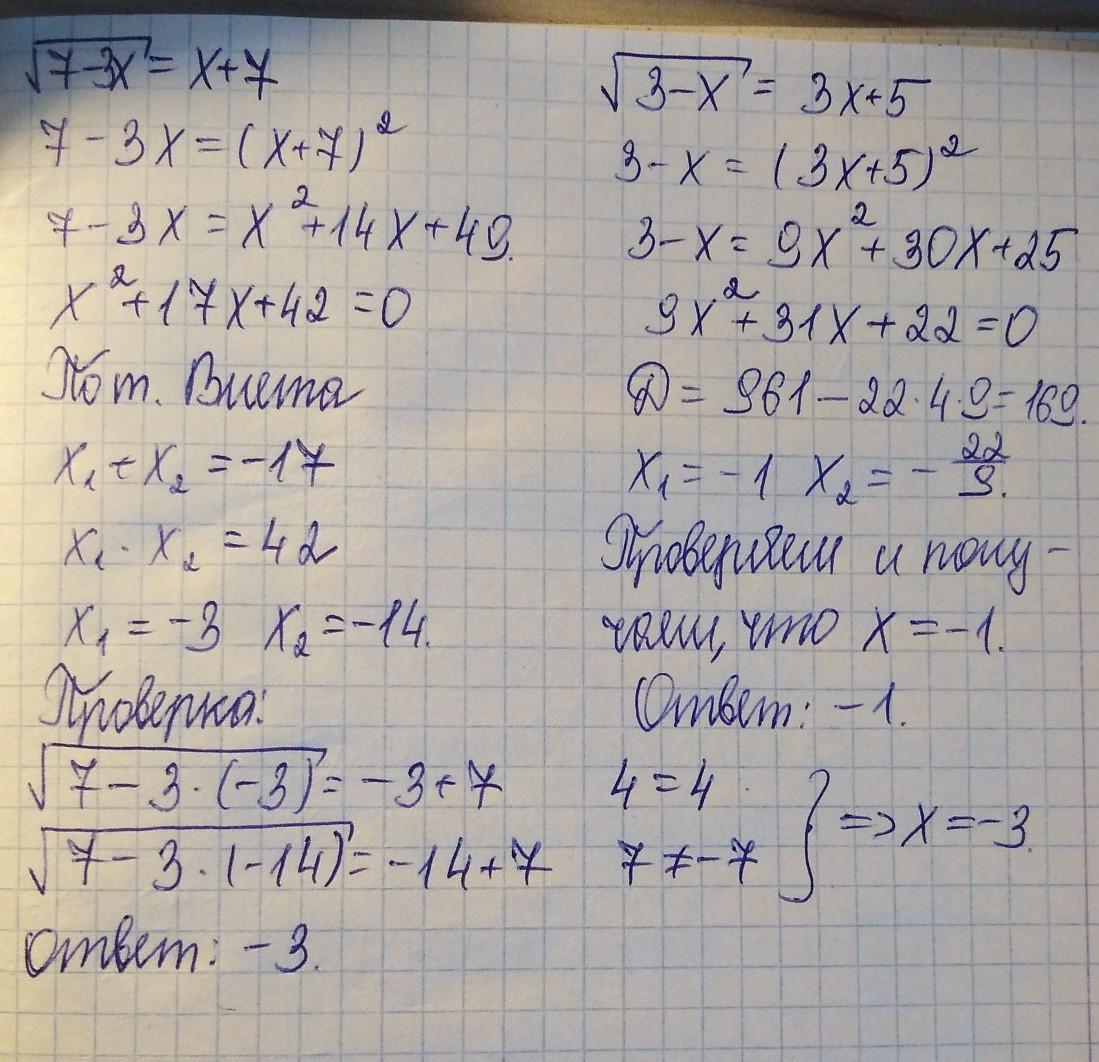 √(7-3x) = x+7
7 - 3x = (x+7)²
7 - 3x = x²+14x+49.
x²+17x+42=0
По т. Виета
x₁ + x₂ = -17
x₁ · x₂ = 42
x₁ = -3 x₂ = -14.
Проверка:
√(7 - 3·(-3)) = -3+7 4=4
√(7 - 3·(-14)) = -14+7 7≠-7 } => x = -3.
Ответ: -3.
√(3-x) = 3x+5
3-x = (3x+5)²
3-x = 9x²+30x+25
9x²+31x+22=0
D = 961-22·4·9=169.
x₁ = -1 x₂ = -22/9.
Проверяем и полу-
чаем, что x = -1.
Ответ: -1.